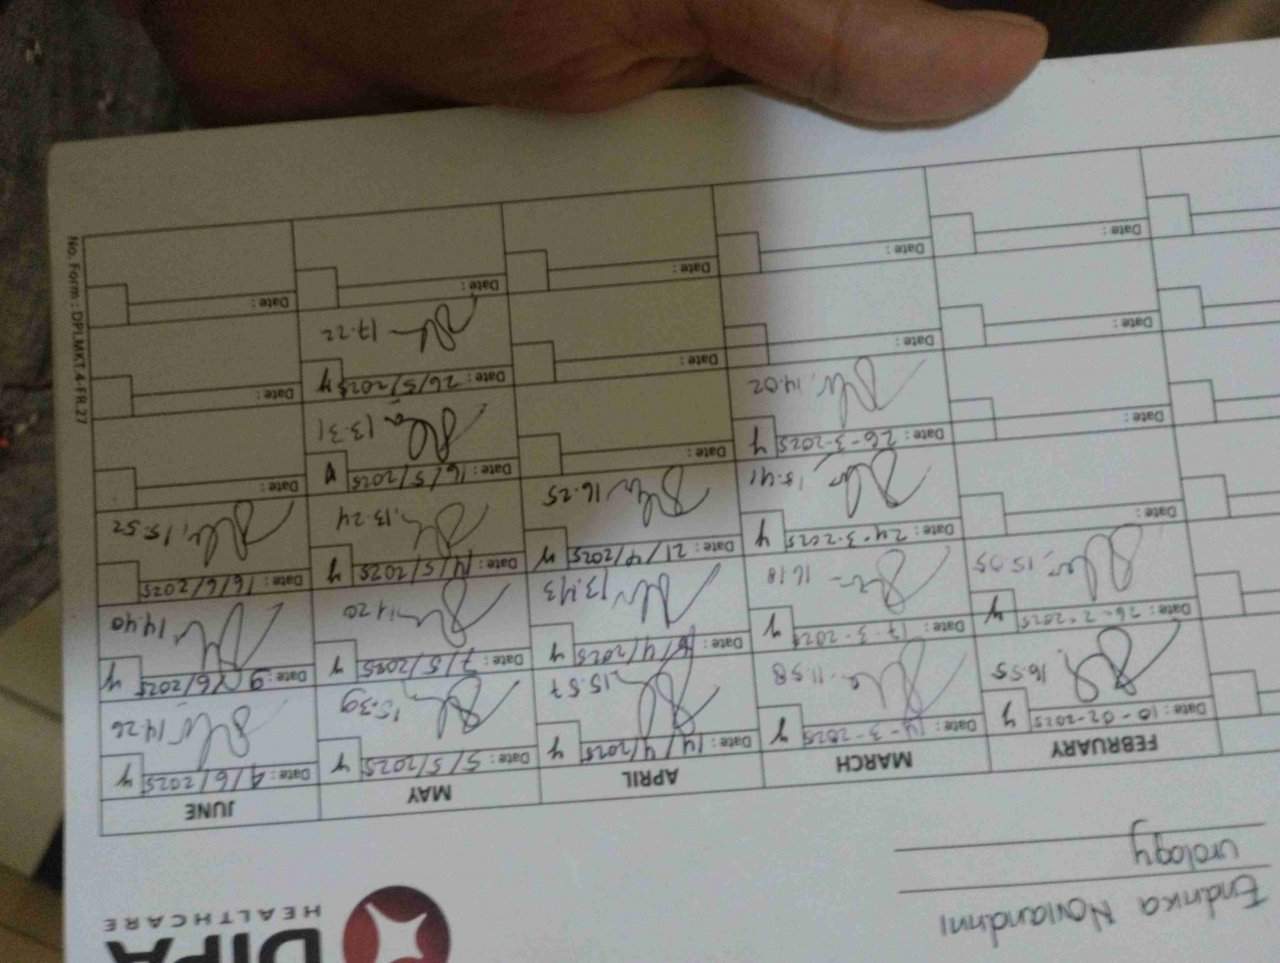 DIPA
HEALTHCARE
Endrika Noviandrini
urology
FEBRUARY MARCH APRIL MAY JUNE
Date: 10-02-2025 Y Date: 14-3-2025 Y Date: 14/4/2025 Y Date: 5/5/2025 Y Date: 4/6/2025 Y
16.55 11.58 15.57 15.39 14.26
Date: 26-2-2025 Y Date: 17-3-2025 Y Date: /4/2025 Y Date: 7/5/2025 Y Date: 9/6/2025 Y
15.05 16.18 13.43 14.20 14.40
Date: Date: 24-3-2025 Y Date: 21/4/2025 Y Date: 14/5/2025 Y Date: 16/6/2025
15.41 16.25 13.24 15.52
Date: Date: 26-3-2025 Y Date: Date: 16/5/2025 Y Date:
14.02 13.31
Date: Date: Date: Date: 26/5/2025 Y Date:
17.22
Date: Date: Date: Date: Date:
No. Form : DPI.MKT.4-FR.27